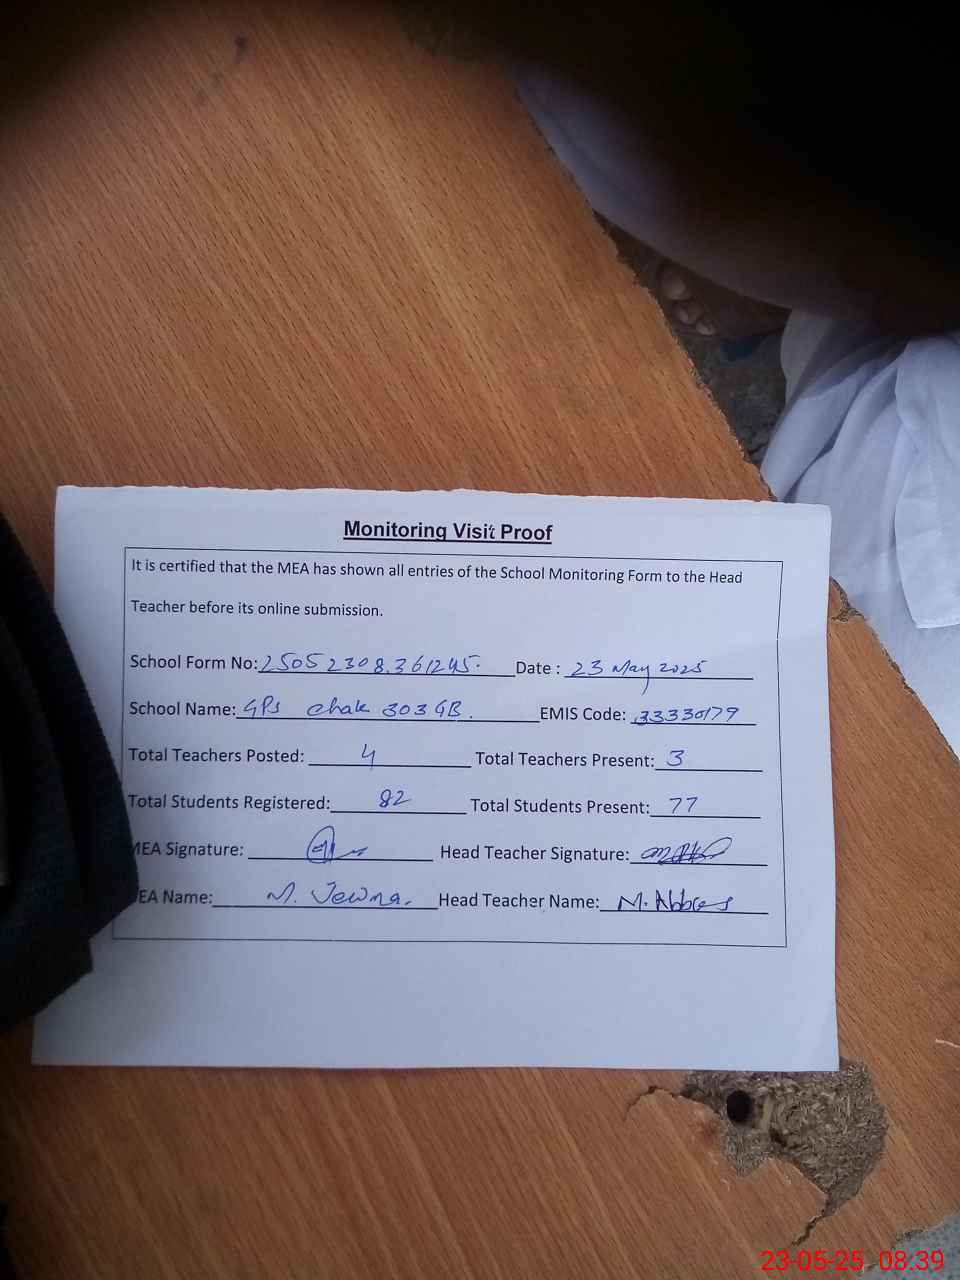 Monitoring Visit Proof
It is certified that the MEA has shown all entries of the School Monitoring Form to the Head
Teacher before its online submission.
School Form No: 25052308361245. Date : 23 May 2025
School Name: GPS Chak 303 GB. EMIS Code: 33330179
Total Teachers Posted: 4 Total Teachers Present: 3
Total Students Registered: 82 Total Students Present: 77
MEA Signature: Head Teacher Signature:
EA Name: M. Head Teacher Name: M. Abbas
23-05-25 08:39